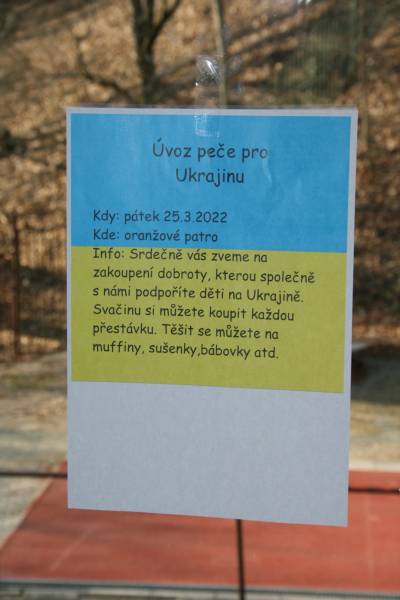 Úvoz peče pro
Ukrajinu
Kdy: pátek 25.3.2022
Kde: oranžové patro
Info: Srdečně vás zveme na
zakoupení dobroty, kterou společně
s námi podpoříte děti na Ukrajině.
Svačinu si můžete koupit každou
přestávku. Těšit se můžete na
muffiny, sušenky,bábovky atd.